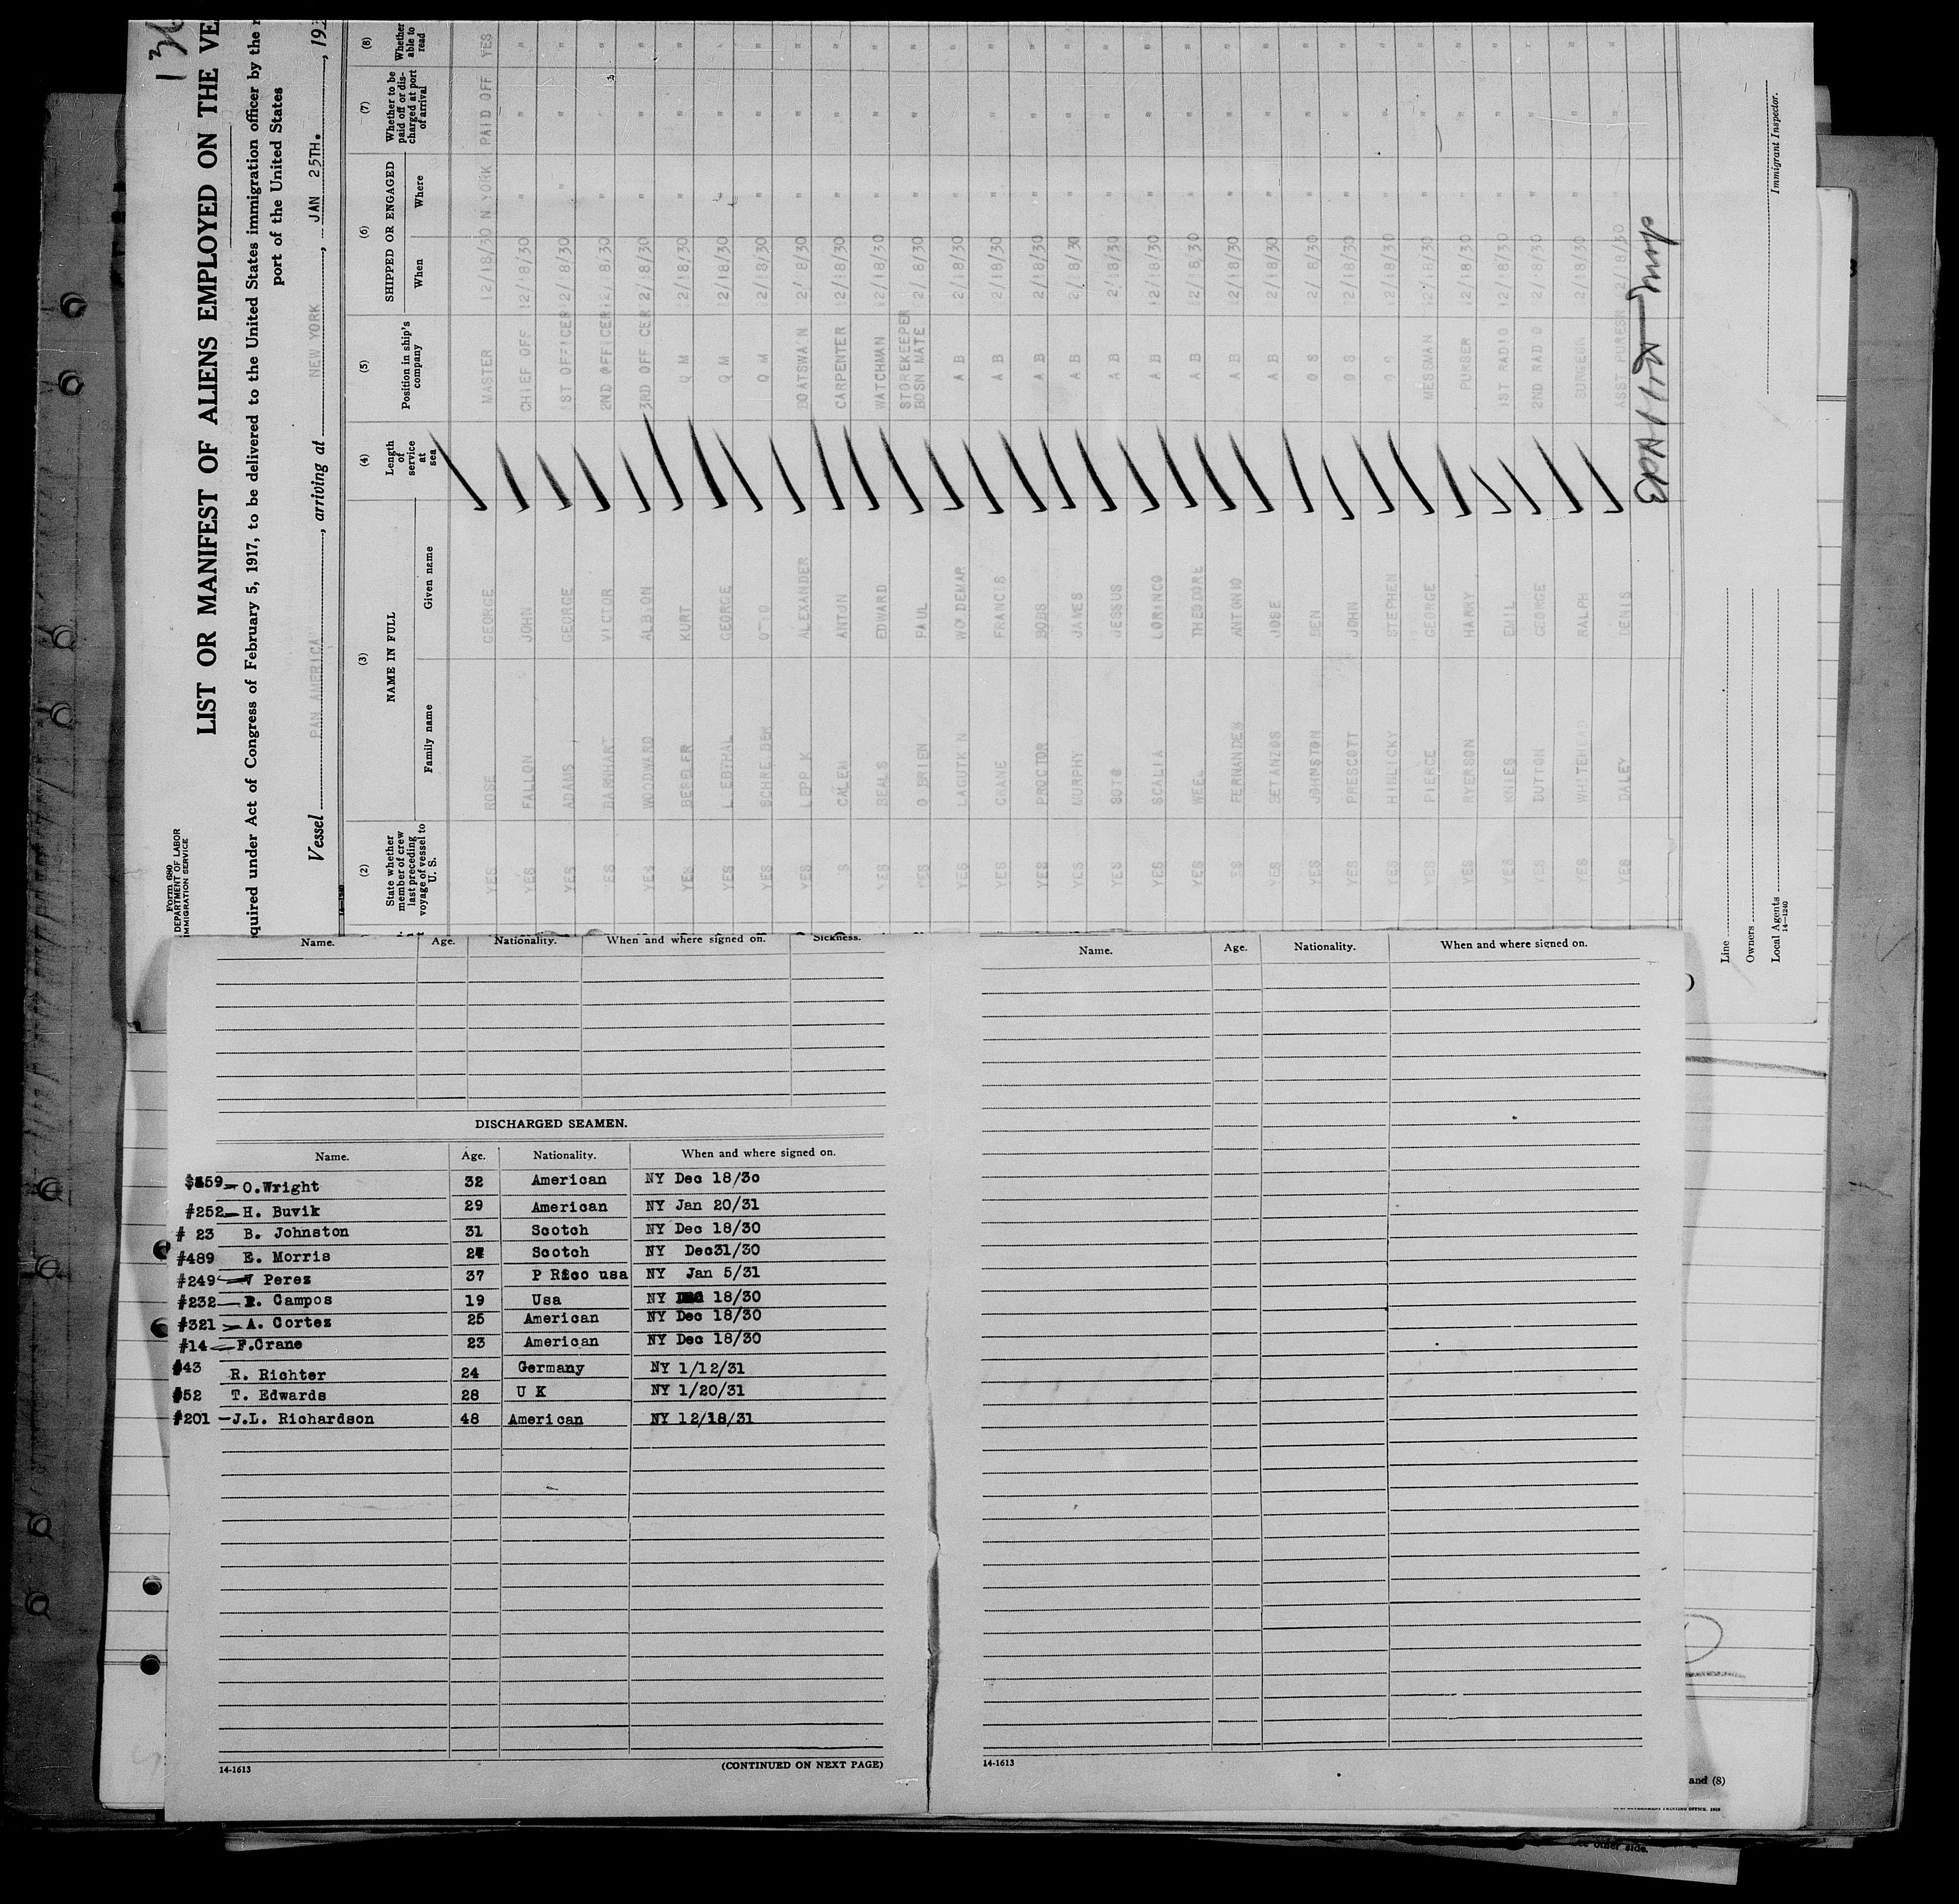 Form 680
DEPARTMENT OF LABOR
IMMIGRATION SERVICE
LIST OR MANIFEST OF ALIENS EMPLOYED ON THE VE
quired under Act of Congress of February 5, 1917, to be delivered to the United States immigration officer by the
port of the United States
Vessel PAN AMERICA, arriving at NEW YORK, JAN 25TH., 193
(2) (3) (4) (5) (6) (7) (8)
State whether member of crew last preceding voyage of vessel to U. S.
NAME IN FULL
Family name Given name
Length of service at sea
Position in ship's company
SHIPPED OR ENGAGED
When Where
Whether to be paid off or discharged at port of arrival
Whether able to read
YES ROSE GEORGE MASTER 12/18/30 N.YORK PAID OFF YES
YES FALLON JOHN CHIEF OFF 12/18/30 " " "
YES ADAMS GEORGE 1ST OFFICER 12/18/30 " " "
YES BARNHART VICTOR 2ND OFFICER 12/18/30 " " "
YES WOODWARD ALBION 3RD OFFICER 12/18/30 " " "
YES BESELER KURT Q M 12/18/30 " " "
YES LIEBTHAL GEORGE Q M 12/18/30 " " "
YES SCHREIBER OTTO Q M 12/18/30 " " "
YES LEPPIK ALEXANDER BOATSWAIN 12/18/30 " " "
CALLEM ANTON CARPENTER 12/18/30 " " "
YES BEALS EDWARD WATCHMAN 12/18/30 " " "
YES O BRIEN PAUL STOREKEEPER BOSN MATE 12/18/30 " " "
YES LAGUTKIN WOLDEMAR A B 12/18/30 " " "
YES CRANE FRANCIS A B 12/18/30 " " "
YES PROCTOR BOBS A B 12/18/30 " " "
YES MURPHY JAMES A B 12/18/30 " " "
YES SOTO JESSUS A B 12/18/30 " " "
YES SCALIA LORINCO A B 12/18/30 " " "
YES WEEL THEODORE A B 12/18/30 " " "
YES FERNANDER ANTONIO A B 12/18/30 " " "
YES BETANZOS JOSE A B 12/18/30 " " "
YES JOHNSTON BEN O S 12/18/30 " " "
YES PRESCOTT JOHN O S 12/18/30 " " "
YES HINLICKY STEPHEN O S 12/18/30 " " "
YES PIERCE GEORGE MESSMAN 12/18/30 " " "
YES RYERSON HARRY PURSER 12/18/30 " " "
YES KNIES EMIL 1ST RADIO 12/18/30 " " "
YES DUTTON GEORGE 2ND RADIO 12/18/30 " " "
YES WHITEHEAD RALPH SURGEON 12/18/30 " " "
YES DALEY DENIS ASST PURESR 12/18/30 " " "
Line
Owners
Local Agents
14-1240
Immigrant Inspector.
Name. Age. Nationality. When and where signed on. Sickness.
DISCHARGED SEAMEN.
Name. Age. Nationality. When and where signed on.
559 O.Wright 32 American NY Dec 18/30
#252 H. Buvik 29 American NY Jan 20/31
# 23 B. Johnston 31 Scotch NY Dec 18/30
#489 E. Morris 24 Scotch NY Dec31/30
#249 V Perez 37 P Rico usa NY Jan 5/31
#232 R. Campos 19 Usa NY Dec 18/30
#321 A. Cortez 25 American NY Dec 18/30
#14 F.Crane 23 American NY Dec 18/30
#43 R. Richter 24 Germany NY 1/12/31
#52 T. Edwards 28 U K NY 1/20/31
#201 J.L. Richardson 48 American NY 12/18/31
14-1613 (CONTINUED ON NEXT PAGE)
Name. Age. Nationality. When and where signed on.
14-1613
and (8)
other side.